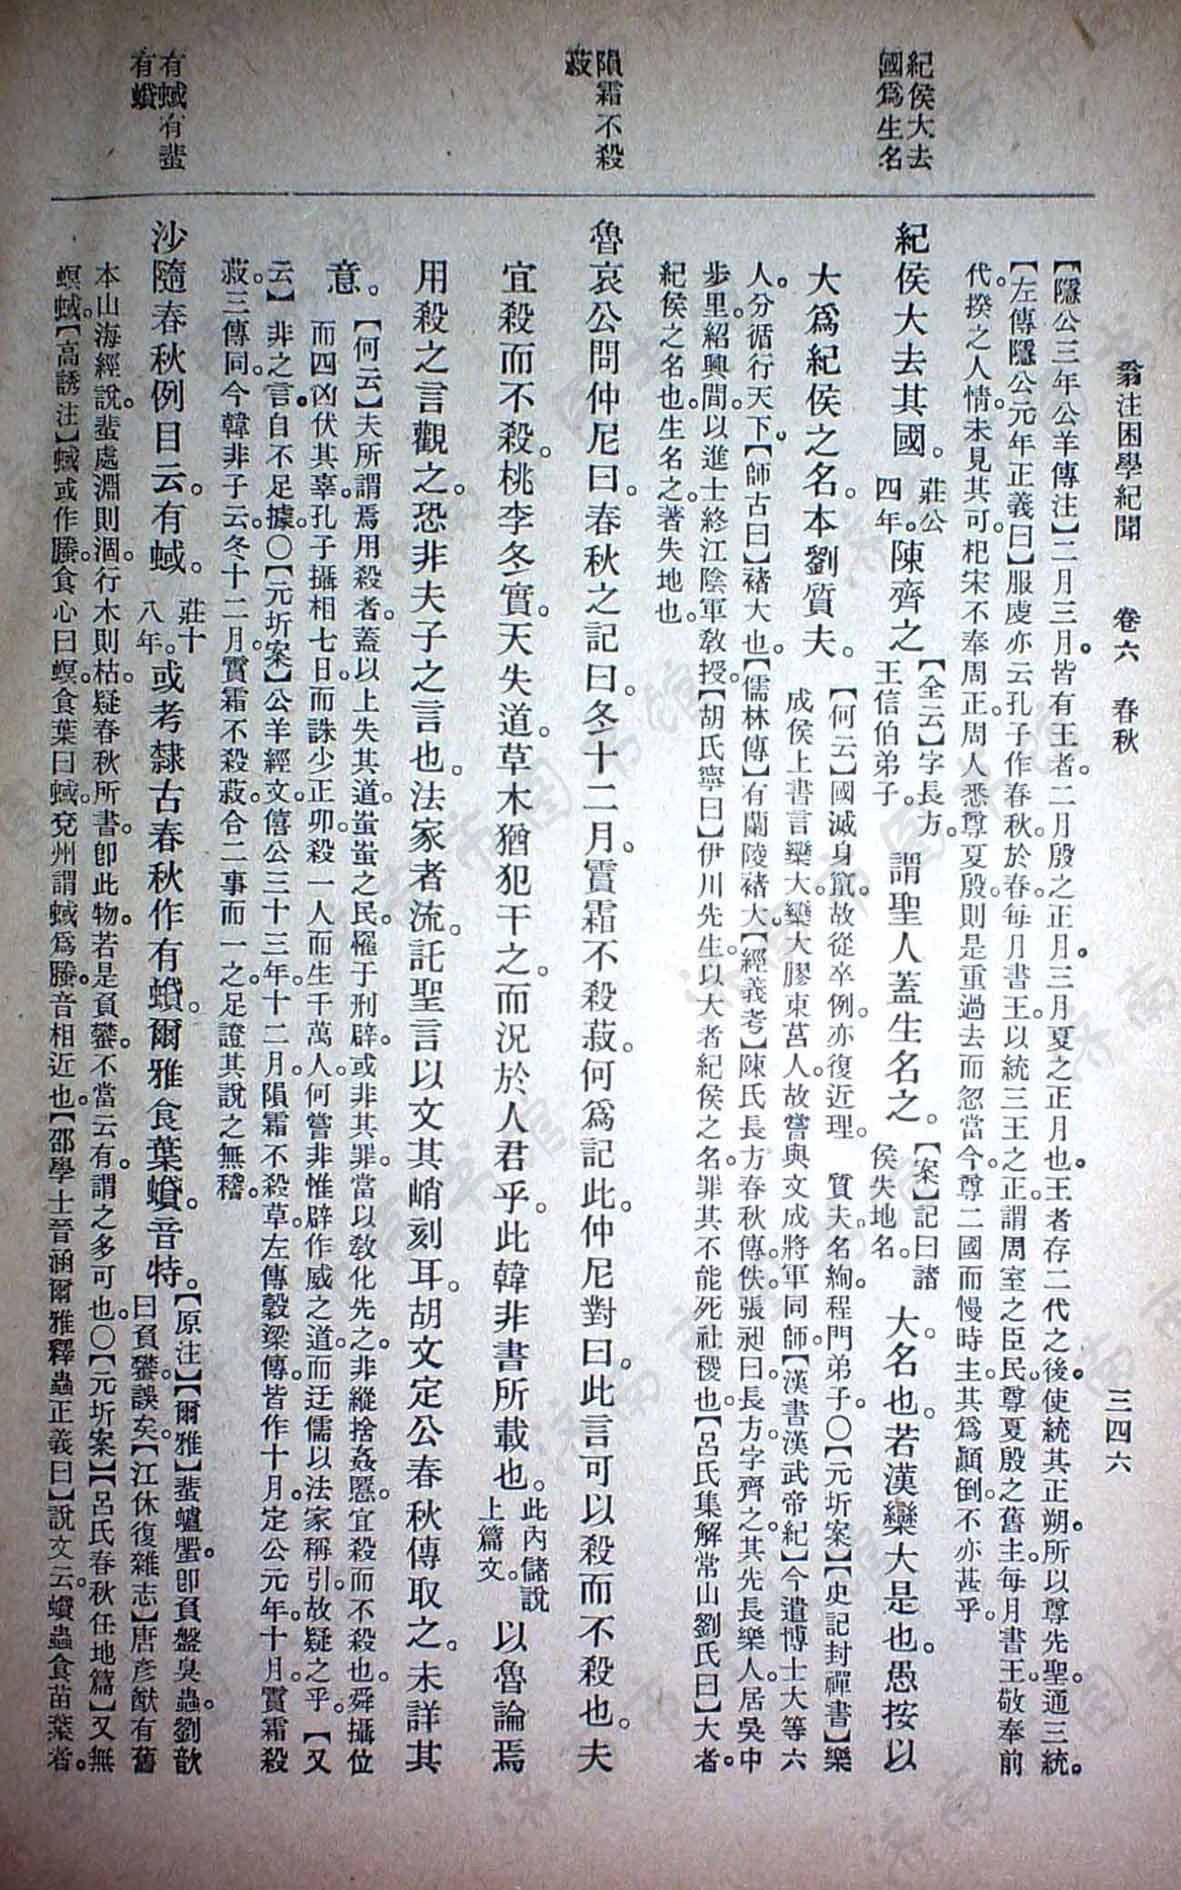 翁注困學紀聞　卷六　春秋　三四六
紀侯大去
國爲生名
隕霜不殺
菽
有蜮有蜚
有蟘
【隱公三年公羊傳注】二月三月皆有王者。二月殷之正月。三月夏之正月也。王者存二代之後。使統其正朔。所以尊先聖。通三統。
【左傳隱公元年正義曰】服虔亦云。孔子作春秋。於春每月書王。以統三王之正。謂周室之臣民。尊夏殷之舊主。每月書王。敬奉前
代。揆之人情。未見其可。杞宋不奉周正。周人悉尊夏殷。則是重過去而忽當今。尊二國而慢時主。其爲顚倒。不亦甚乎。
紀侯大去其國。莊公四年。陳齊之【全云】字長方。王信伯弟子。謂聖人蓋生名之。【案】記曰諸侯失地名。大名也。若漢欒大是也。愚按以
大爲紀侯之名。本劉質夫。【何云】國滅身竄。故從卒例。亦復近理。　質夫名絢。程門弟子。〇【元圻案】【史記封禪書】樂
成侯上書言欒大。欒大膠東莒人。故嘗與文成將軍同師。【漢書漢武帝紀】今遣博士大等六
人。分循行天下。【師古曰】褚大也。【儒林傳】有蘭陵褚大。【經義考】陳氏長方春秋傳。佚。張昶曰。長方字齊之。其先長樂人。居吳中
步里。紹興間。以進士終江陰軍敎授。【胡氏寧曰】伊川先生。以大者紀侯之名。罪其不能死社稷也。【呂氏集解常山劉氏曰】大者。
紀侯之名也。生名之。著失地也。
魯哀公問仲尼曰。春秋之記曰。冬十二月。霣霜不殺菽。何爲記此。仲尼對曰。此言可以殺而不殺也。夫
宜殺而不殺。桃李冬實。天失道。草木猶犯干之。而況於人君乎。此韓非書所載也。此內儲說上篇文。以魯論焉
用殺之言觀之。恐非夫子之言也。法家者流。託聖言以文其峭刻耳。胡文定公春秋傳取之。未詳其
意。【何云】夫所謂焉用殺者。蓋以上失其道。蚩蚩之民。罹于刑辟。或非其罪。當以敎化先之。非縱捨姦慝。宜殺而不殺也。舜攝位
而四凶伏其辜。孔子攝相七日。而誅少正卯。殺一人而生千萬人。何嘗非惟辟作威之道。而迂儒以法家稱引。故疑之乎。【又
云】非之言。自不足據。〇【元圻案】公羊經文。僖公三十三年。十二月。隕霜不殺草。左傳穀梁傳。皆作十月。定公元年。十月。霣霜殺
菽。三傳同。今韓非子云。冬十二月。霣霜不殺菽。合二事而一之。足證其說之無稽。
沙隨春秋例目云。有蜮。莊十八年。或考隸古春秋作有蟘。爾雅食葉蟘。音特。【原注】【爾雅】蜚蠦蜰。卽負盤臭蟲。劉歆
曰負蠜。誤矣。【江休復雜志】唐彥猷有舊
本山海經說。蜚處淵則涸。行木則枯。疑春秋所書。卽此物。若是負蠜。不當云有。謂之多可也。〇【元圻案】【呂氏春秋任地篇】又無
螟蜮。【高誘注】蜮或作螣。食心曰螟。食葉曰蜮。兗州謂蜮爲螣。音相近也。【邵學士晉涵爾雅釋蟲正義曰】說文云。蟘。蟲食苗葉者。